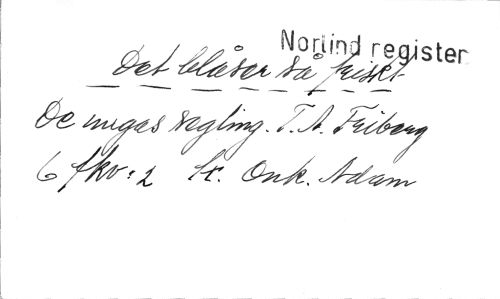 Norlind register
Det blåser så friskt
De ungas segling. T. A. Friberg
6 fkv: 2 St. Onk. Adam